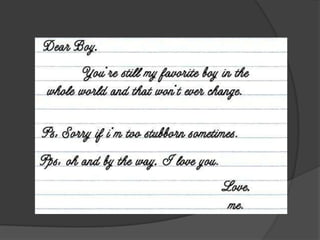 Dear Boy,
You're still my favorite boy in the
whole world and that won't ever change.
Ps, Sorry if i'm too stubborn sometimes.
Pps, oh and by the way, I love you.
Love,
me.